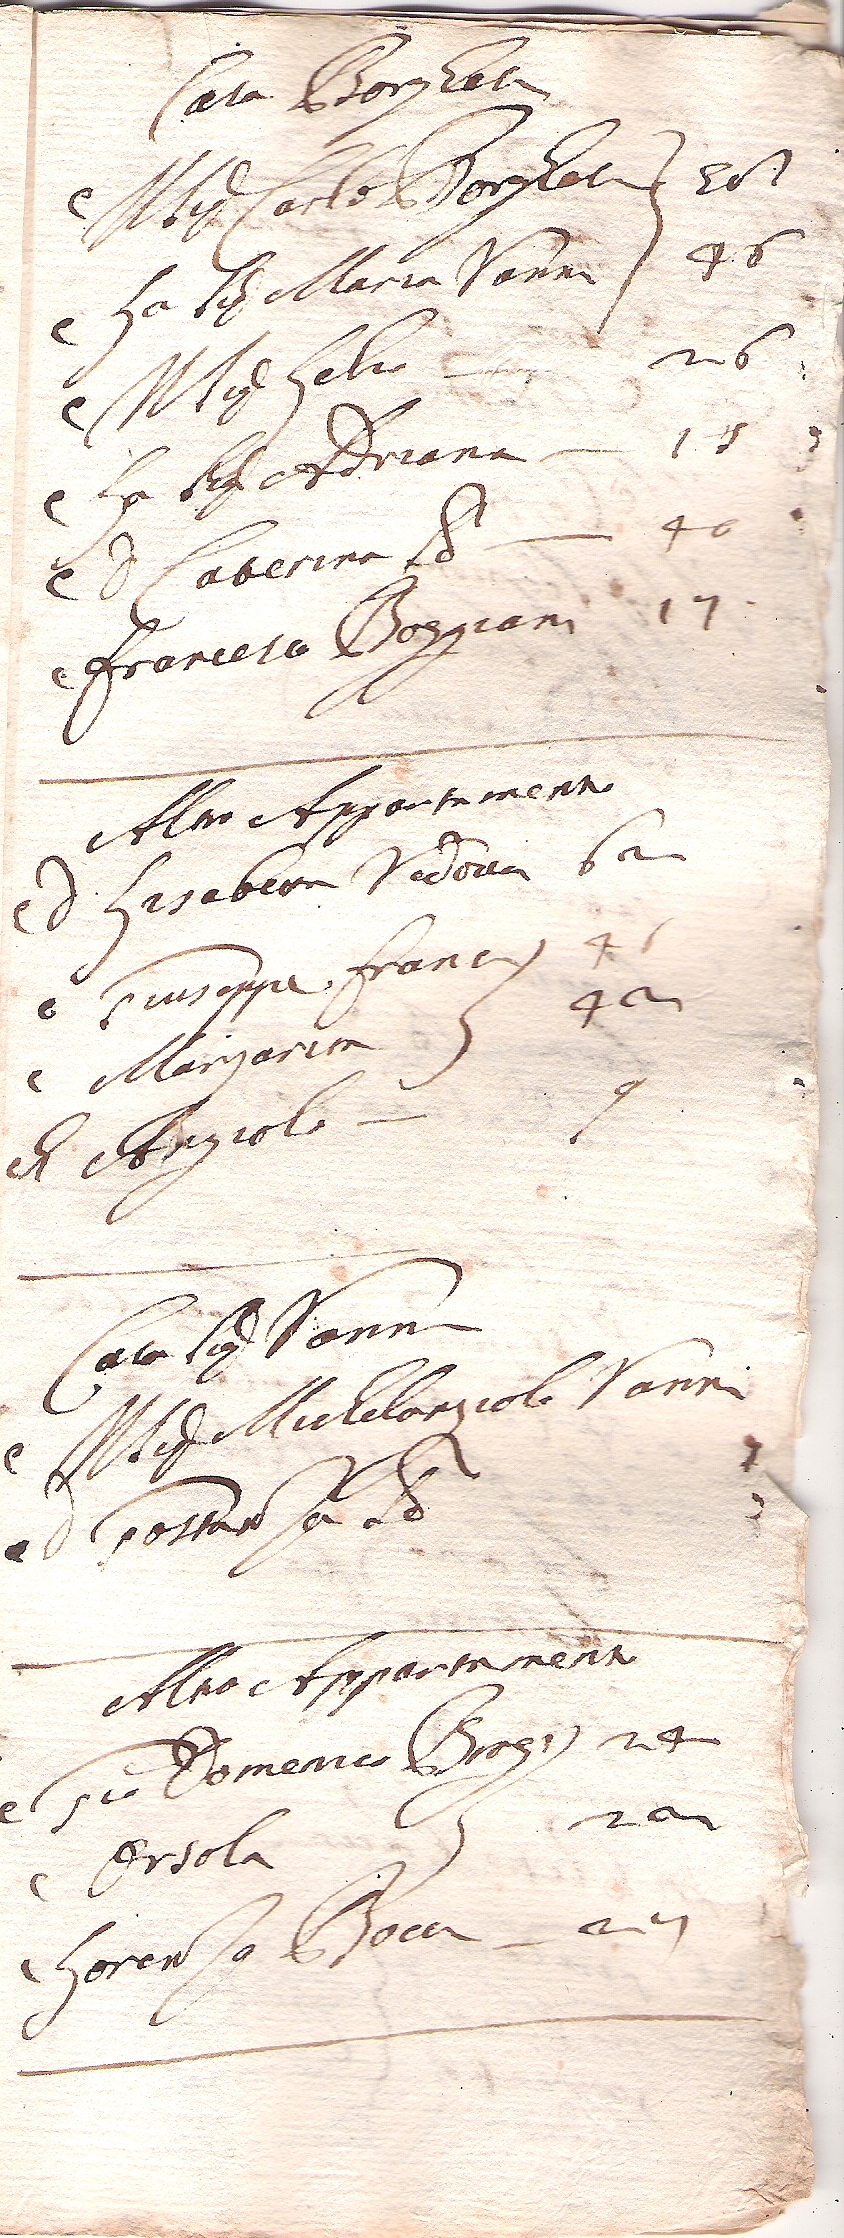 Casa Borghesi
c Il Sig Carlo Borghesi
c La Sig Maria Vanni 46
c Il Sig 26
c La Sig Adriana — 15
c D Caterina — 40
c Francesco Boggiani 17
Altro Appartamento
c D Lisabetta Vedova 62
c Giuseppe Franci 46
c Margarita 42
Angiolo — 9
Casa Sig Vanni
c Il Sig Michelangiolo Vanni
c D Gostanza
Altro Appartamento
c Gio Domenico Brogi 24
c Orsola 22
c Lorenzo Bocci — 27